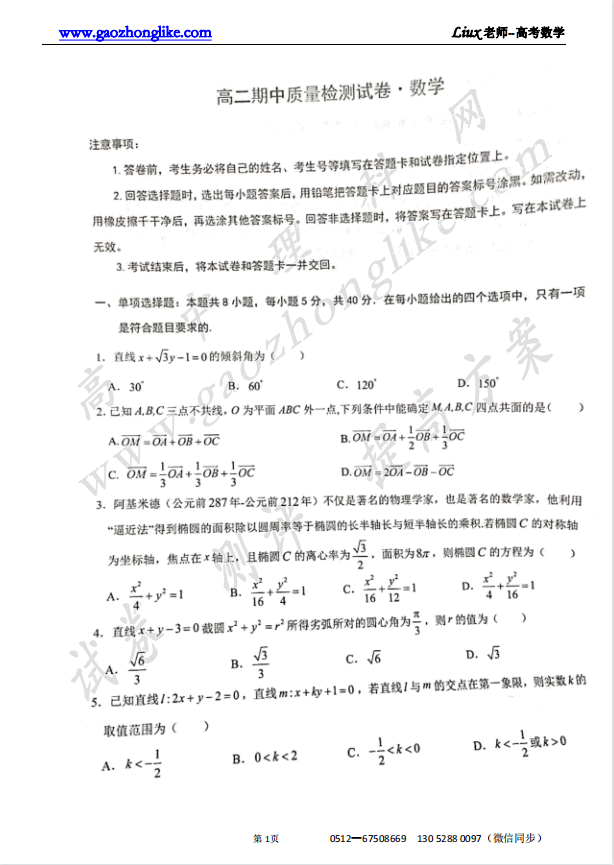 www.gaozhonglike.com Liux老师-高考数学
高二期中质量检测试卷·数学
注意事项:
1.答卷前,考生务必将自己的姓名、考生号等填写在答题卡和试卷指定位置上。
2.回答选择题时,选出每小题答案后,用铅笔把答题卡上对应题目的答案标号涂黑。如需改动,
用橡皮擦干干净后,再选涂其他答案标号。回答非选择题时,将答案写在答题卡上。写在本试卷上
无效。
3.考试结束后,将本试卷和答题卡一并交回。
一、单项选择题:本题共8小题,每小题5分,共40分.在每小题给出的四个选项中,只有一项
是符合题目要求的.
1. 直线 x+√3y−1=0 的倾斜角为( )
A. 30° B. 60° C. 120° D. 150°
2. 已知 A,B,C 三点不共线,O 为平面 ABC 外一点,下列条件中能确定 M,A,B,C 四点共面的是( )
A. \overrightarrow{OM}=\overrightarrow{OA}+\overrightarrow{OB}+\overrightarrow{OC} B. \overrightarrow{OM}=\overrightarrow{OA}+\frac{1}{2}\overrightarrow{OB}+\frac{1}{3}\overrightarrow{OC}
C. \overrightarrow{OM}=\frac{1}{3}\overrightarrow{OA}+\frac{1}{3}\overrightarrow{OB}+\frac{1}{3}\overrightarrow{OC} D. \overrightarrow{OM}=2\overrightarrow{OA}-\overrightarrow{OB}-\overrightarrow{OC}
3. 阿基米德(公元前287年-公元前212年)不仅是著名的物理学家,也是著名的数学家,他利用
“逼近法”得到椭圆的面积除以圆周率等于椭圆的长半轴长与短半轴长的乘积.若椭圆 C 的对称轴
为坐标轴,焦点在 x 轴上,且椭圆 C 的离心率为 √3/2,面积为 8π,则椭圆 C 的方程为( )
A. x²/4+y²=1 B. x²/16+y²/4=1 C. x²/16+y²/12=1 D. x²/4+y²/16=1
4. 直线 x+y−3=0 截圆 x²+y²=r² 所得劣弧所对的圆心角为 π/3,则 r 的值为( )
A. √6/3 B. √3/3 C. √6 D. √3
5. 已知直线 l:2x+y−2=0,直线 m:x+ky+1=0,若直线 l 与 m 的交点在第一象限,则实数 k 的
取值范围为( )
A. k<−1/2 B. 0<k<2 C. −1/2<k<0 D. k<−1/2或k>0
高中理科网
www.gaozhonglike.com
试卷 测评 提高方案
第 1页 0512—67508669 130 5288 0097(微信同步)